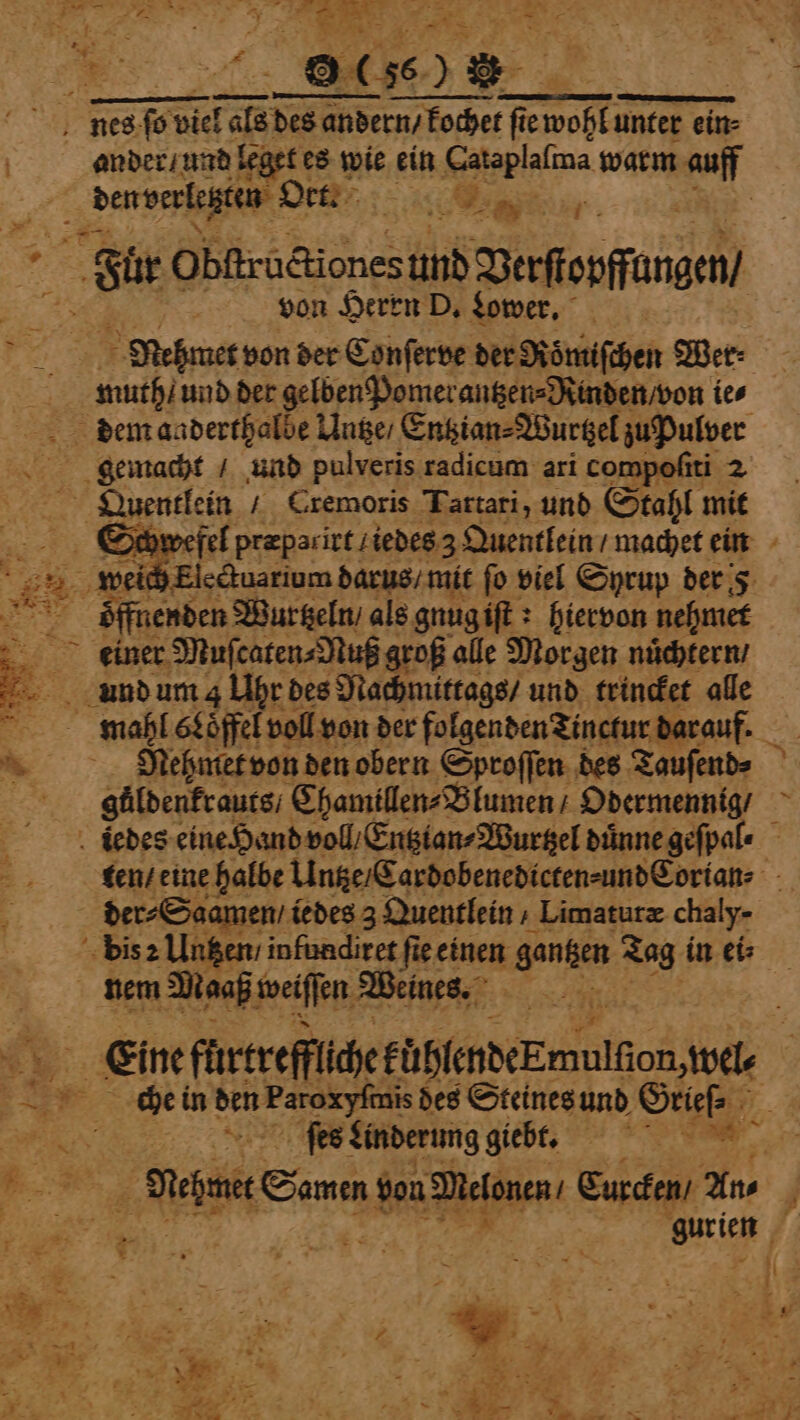 (56)
nes ſo viel als des andern/ kochet ſie wohl unter ein⸗
ander/ und leget es wie ein Cataplaſma warm auff
den verletzten Ort.
Fuͤr Obſtructiones und Verſtopffungen/
von Herrn D. Lower.
Nehmet von der Conſerve der Roͤmiſchen Wer⸗
muth/ und der gelben Pomerantzen⸗Rinden/ von ie⸗
dem anderthalbe Untze/ Entzian⸗Wurtzel zu Pulver
gemacht / und pulveris radicum ari compoſiti 2
Quentlein / Cremoris Tartari, und Stahl mit
Schwefel præparirt / iedes 3 Quentlein / machet ein
weich Electuarium darus/ mit ſo viel Syrup der 5
oͤffnenden Wurtzeln/ als gnug iſt : hiervon nehmet
einer Muſcaten⸗Nuß groß alle Morgen nuͤchtern/
und um 4 Uhr des Nachmittags/ und trincket alle
mahl 6 Loͤffel voll von der folgenden Tinctur darauf.
Nehmet von den obern Sproſſen des Tauſend⸗
guͤldenkrauts/ Chamillen⸗Blumen / Odermennig/
iedes eine Hand voll/ Entzian⸗Wurtzel duͤnne geſpal⸗
ten/ eine halbe Untze/ Cardobenedicten⸗und Corian⸗
der⸗Saamen/ iedes 3 Quentlein / Limaturæ chaly-
bis 2 Untzen/ infundiret ſie einen gantzen Tag in ei⸗
nem Maaß weiſſen Weines.
Eine fuͤrtreffliche kuͤhlende Emulſion, wel⸗
che in den Paroxyſmis des Steines und Grieſ⸗
ſes Linderung giebt.
Nehmet Samen von Melonen / Curcken/ An⸗
gurien